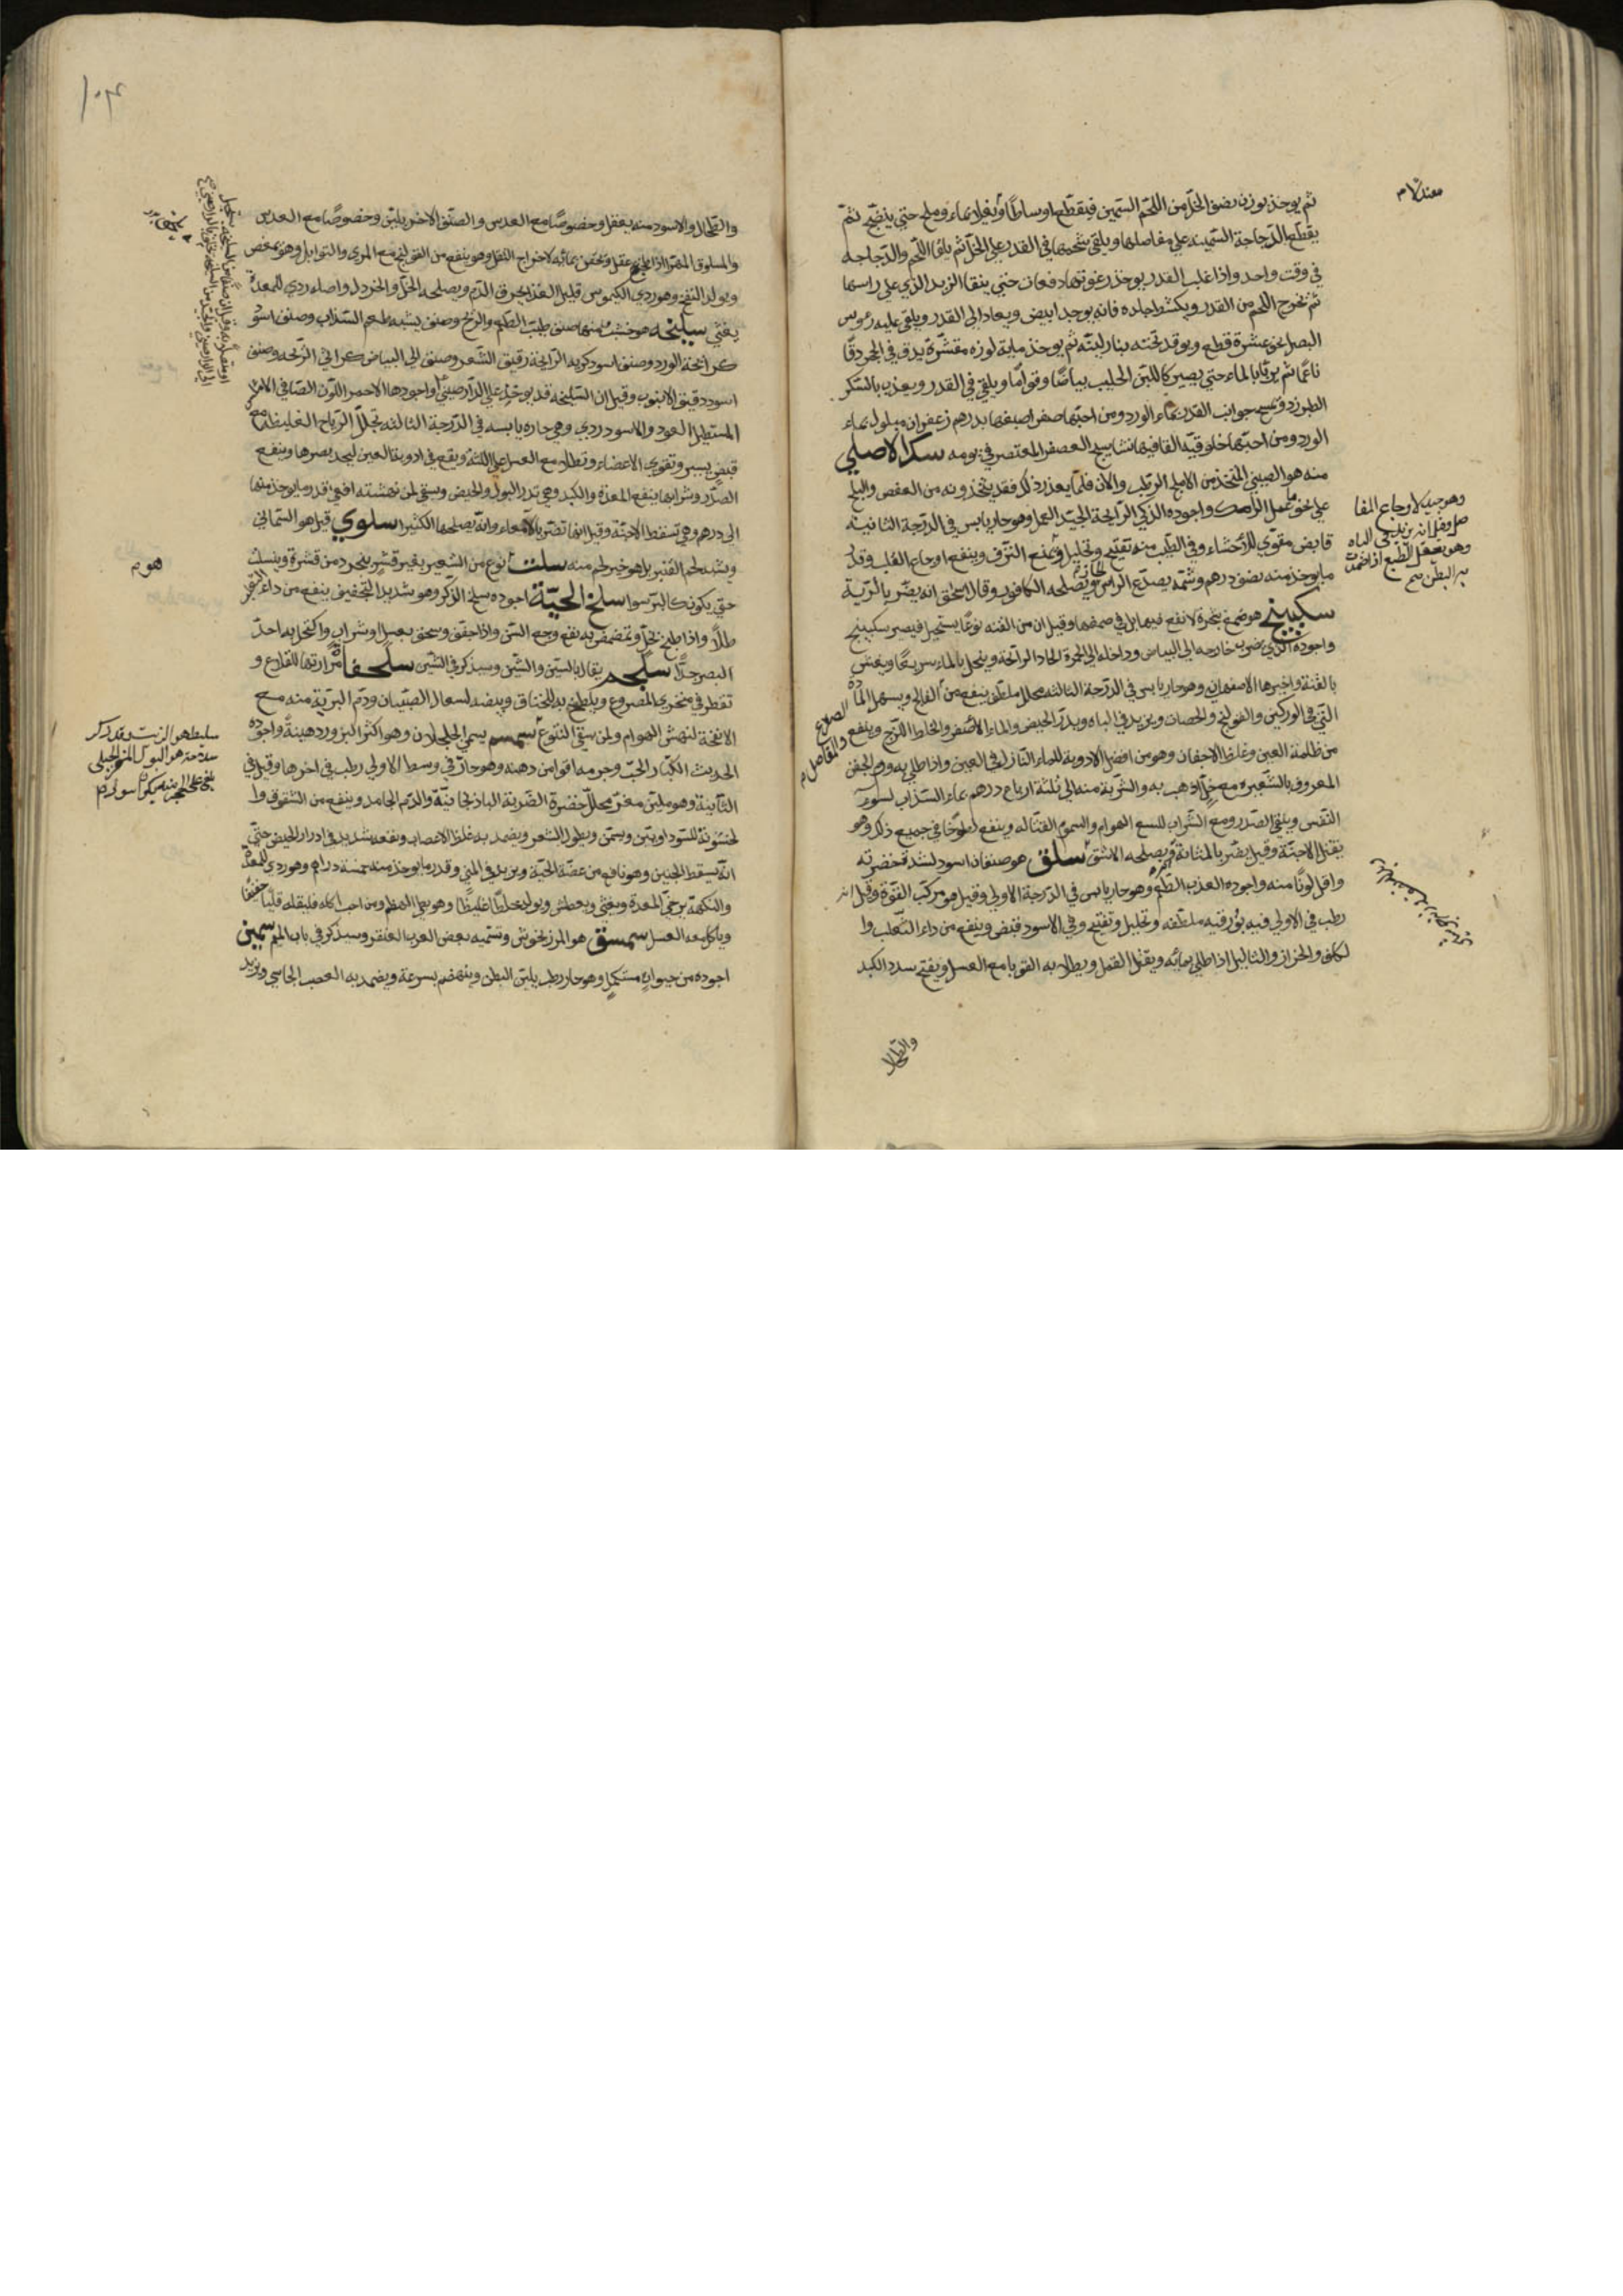 ثم يوخذ بوزن نصف الخل من اللحم السمين فيقطع اوساطا ويغلا بماء وملح حتي ينضج ثم
يقطع الدجاجة السمينة علي مفاصلها ويلقي شحمها في القدر علي الخل ثم يلقا اللحم والدجاجه
في وقت واحد واذا غلب القدر يوخذ رغوتها دفعات حتي ينقا الزبد الذي علي راسها
ثم تخرج اللحم من القدر ويكشط جلده فانه يوجد ابيض ويعاد الي القدر ويلقي عليه رءوس
البصل نحو عشرة قطع ويوقد تحته بنار لينه ثم يوخذ ماية لوزه مقشرة يدق في الجر دقا
ناعما ثم يربا بالماء حتي يصير كاللبن الحليب بياضا وقواما ويلقي في القدر ويعذب بالسكر
الطبرزد وتمسح جوانب القدر بماء الورد ومن احبها صفرا صبغها بدرهم زعفران مبلول بماء
الورد ومن احبها خلوقية القا فيها نشاستج العصفر المعتصر في يومه سك الاصلي
منه هو الصيني المتخذ من الاملج الرطب والان فلما يعذر ذلك فقد يتخذونه من العفص والبلح
علي نحو عمل الرامك واجوده الذكي الرايحة الجيد العمل وهو حار يابس في الدرجة الثانية
قابض مقوي للاحشاء وفي الطيب منه تفتيح وتحليل ويمنع النزف وينفع اوجاع القلب وقدر
ما يوخذ منه نصف درهم وشمه يصدع الراس الحار ويصلحه الكافور وقال اسحق انه يضر بالرية
سكبينج هو صمغ شجرة لا نفع فيها بل في صمغها وقيل ان من القنه نوعا يستحيل فيصير سكبينج
واجوده الذي ضرب خارجه الي البياض وداخله الي الحمرة الحاد الرائحة وينحل بالماء سريعا ويغش
بالقنة واخيرها الاصفهاني وهو حار يابس في الدرجة الثالثه محلل ملطف ينفع من الفالج ويسهل المادة
التي في الوركين والقولنج والحصان ويزيد في الباه ويدر الحيض والماء الاصفر والخاط اللزج وينفع
من ظلمة العين وغلظ الاجفان وهو من افضل الادوية للماء النازل في العين واذا طلي به ورم الجفن
المعروف بالشعيره مع خل اذهب به والشربة منه الي ثلثة ارباع درهم بماء السذاب لسوء
النفس وينقي الصدر ومع الشراب للسع الهوام والسموم القتاله وينفع لطوخا في جميع ذلك وهو
يقتل الاجنة وقيل يضر بالمثانة ويصلحه الاشق سلق هو صنفان اسود لشدة خضرته
واقل لونا منه واجوده العذب الطعم وهو حار يابس في الدرجة الاولي وقيل هو مركب القوة وقيل انه
رطب في الاولي فيه بورقيه ملطفه وتحليل وتفتيح وفي الاسود قبض وينفع من داء الثعلب وا
لكلف والحزاز والثاليل اذا طلي بمائه ويقتل القمل ويطلا به القوبا مع العسل ويفتح سدد الكبد
والطحا
وهو جيد لاوجاع المفا
صل وقيل انه يزيد في الباه
وهو يعقل الطبع اذا ضمدت
به البطن صح
الصداع
والمفاصل
١٠٤
والطحال والاسود منه يعقل وخصوصا مع العدس والصنف الاخر يلين وخصوصا مع العدس
والمسلوق المهترا اذا طبخ عقل ويحقن بمائه لاخراج الثفل وهو ينفع من القولنج مع المري والتوابل وهو يمغص
ويولد النفخ وهو ردي الكيموس قليل الغذا يحرق الدم ويصلحه الخل والخردل واصله ردي للمعدة
يغثي سليخه هو خشب منها صنف طيب الطعم والريح وصنف يشبه طعم السذاب وصنف اسود
كرائحة الورد وصنف اسود كريه الرايحة رقيق الشعر وصنف الي البياض كراثي الرايحه وصنف
اسود دقيق الانبوب وقيل ان السليخه قد يوخذ علي الدارصيني واجودها الاحمر اللون الصافي الاملس
المستطيل العود والاسود ردي وهي حاره يابسه في الدرجة الثالثه تحلل الرياح الغليظه مع
قبض يسير وتقوي الاعضاء وتطلا مع العسل علي اللثه ويقع في ادوية العين ليحد بصرها وينفع
الصدر وشرابها ينفع المعدة والكبد وهي تدر البول والحيض وتسقي لمن نهشته افعي قدر ما يوخذ منها
الي درهم وهي تسقط الاجنة وقيل انها تضر بالامعاء وانه يصلحها الكثيرا سلوي قيل هو السماني
ويشبه لحم القنبر بل هو خير لحم منه سلت نوع من الشعير بغير قشر ينجرد من قشرة وينسلت
حتي يكون كالبر سوا سلخ الحية اجوده سلخ الذكر وهو شديد التجفيف ينفع من داء الثعلب
طلا واذا طبخ بخل وتمضمض به نفع وجع السن واذا حقق وسحق بعسل او شراب واكتحل به احد
البصر جدا سلجم يقال بالسين والشين وسيذكر في الشين سلحفاة مرارتها للقلاع و
تقطر في منخري المصروع ويلطخ به للخناق وبيضه لسعال الصبيان ودم البرية منه مع
الانفحة لنهش الهوام ولمن سقي اليتوع سمسم يسمي الجلجلان وهو اكثر البزور دهنية واجوده
الحديث الكبار الحب وجرمه اقوا من دهنه وهو حار في وسط الاولي رطب في اخرها وقيل في
الثانية وهو ملين مغر محلل خضرة الضربة الباذنجانية والدم الجامد وينفع من الشقوق وا
لخشونة للسوداويين ويسمن ويطول الشعر ويضمد به غلظ الاعصاب ونقعه شديد في ادرار الحيض حتي
انه يسقط الجنين وهو نافع من عضة الحية ويزيد في المني وقدر ما يوخذ منه خمسة دراهم وهو ردي للمعدة
والنكهة يرخي المعدة ويغثي ويعطش ويولد خلطا غليظا وهو بطي الهضم ومن احب اكله فليقله قليا خفيفا
وياكل معه العسل سمسق هو المرزنجوش وتسميه بعض العرب العنقر وسيذكر في باب الميم سمين
اجوده من حيوان مستكمل وهو حار رطب يلين البطن وينهضم بسرعة ويضمد به العصب الجاسي ويزيد